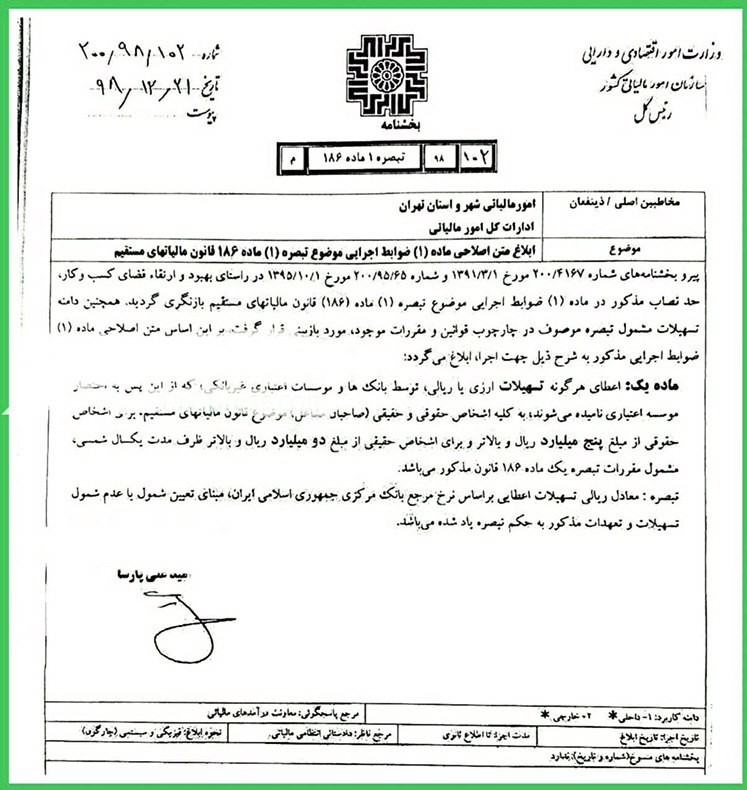 وزارت امور اقتصادی و دارایی
سازمان امور مالیاتی کشور
رئیس کل
شماره ۲۰۰/۹۸/۱۰۲
تاریخ ۹۸/۱۲/۲۱
پیوست
بخشنامه
۱۰۲ ۹۸ تبصره ۱ ماده ۱۸۶ م
مخاطبین اصلی / ذینفعان
امورمالیاتی شهر و استان تهران
ادارات کل امور مالیاتی
موضوع
ابلاغ متن اصلاحی ماده (۱) ضوابط اجرایی موضوع تبصره (۱) ماده ۱۸۶ قانون مالیاتهای مستقیم
پیرو بخشنامه‌های شماره ۲۰۰/۴۱۶۷ مورخ ۱۳۹۱/۳/۱ و شماره ۲۰۰/۹۵/۶۵ مورخ ۱۳۹۵/۱۰/۱ در راستای بهبود و ارتقاء فضای کسب و کار،
حد نصاب مذکور در ماده (۱) ضوابط اجرایی موضوع تبصره (۱) ماده (۱۸۶) قانون مالیاتهای مستقیم بازنگری گردید. همچنین دامنه
تسهیلات مشمول تبصره موصوف در چارچوب قوانین و مقررات موجود، مورد بازبینی قرار گرفت. بر این اساس متن اصلاحی ماده (۱)
ضوابط اجرایی مذکور به شرح ذیل جهت اجرا، ابلاغ می‌گردد:
ماده یک: اعطای هرگونه تسهیلات ارزی یا ریالی، توسط بانک ها و موسسات اعتباری غیربانکی، که از این پس به اختصار
موسسه اعتباری نامیده می‌شوند، به کلیه اشخاص حقوقی و حقیقی (صاحبان مشاغل) موضوع قانون مالیاتهای مستقیم، برای اشخاص
حقوقی از مبلغ پنج میلیارد ریال و بالاتر و برای اشخاص حقیقی از مبلغ دو میلیارد ریال و بالاتر ظرف مدت یکسال شمسی،
مشمول مقررات تبصره یک ماده ۱۸۶ قانون مذکور می‌باشد.
تبصره : معادل ریالی تسهیلات اعطایی براساس نرخ مرجع بانک مرکزی جمهوری اسلامی ایران، مبنای تعیین شمول یا عدم شمول
تسهیلات و تعهدات مذکور به حکم تبصره یاد شده می‌باشد.
امید علی پارسا
دامنه کاربرد: ۱- داخلی* ۲- خارجی *
مرجع پاسخگوئی: معاونت درآمدهای مالیاتی
تاریخ اجرا: تاریخ ابلاغ
مدت اجرا: تا اطلاع ثانوی
مرجع ناظر: دادستانی انتظامی مالیاتی
نحوه ابلاغ: فیزیکی و سیستمی (چارگون)
بخشنامه های منسوخ (شماره و تاریخ): ندارد